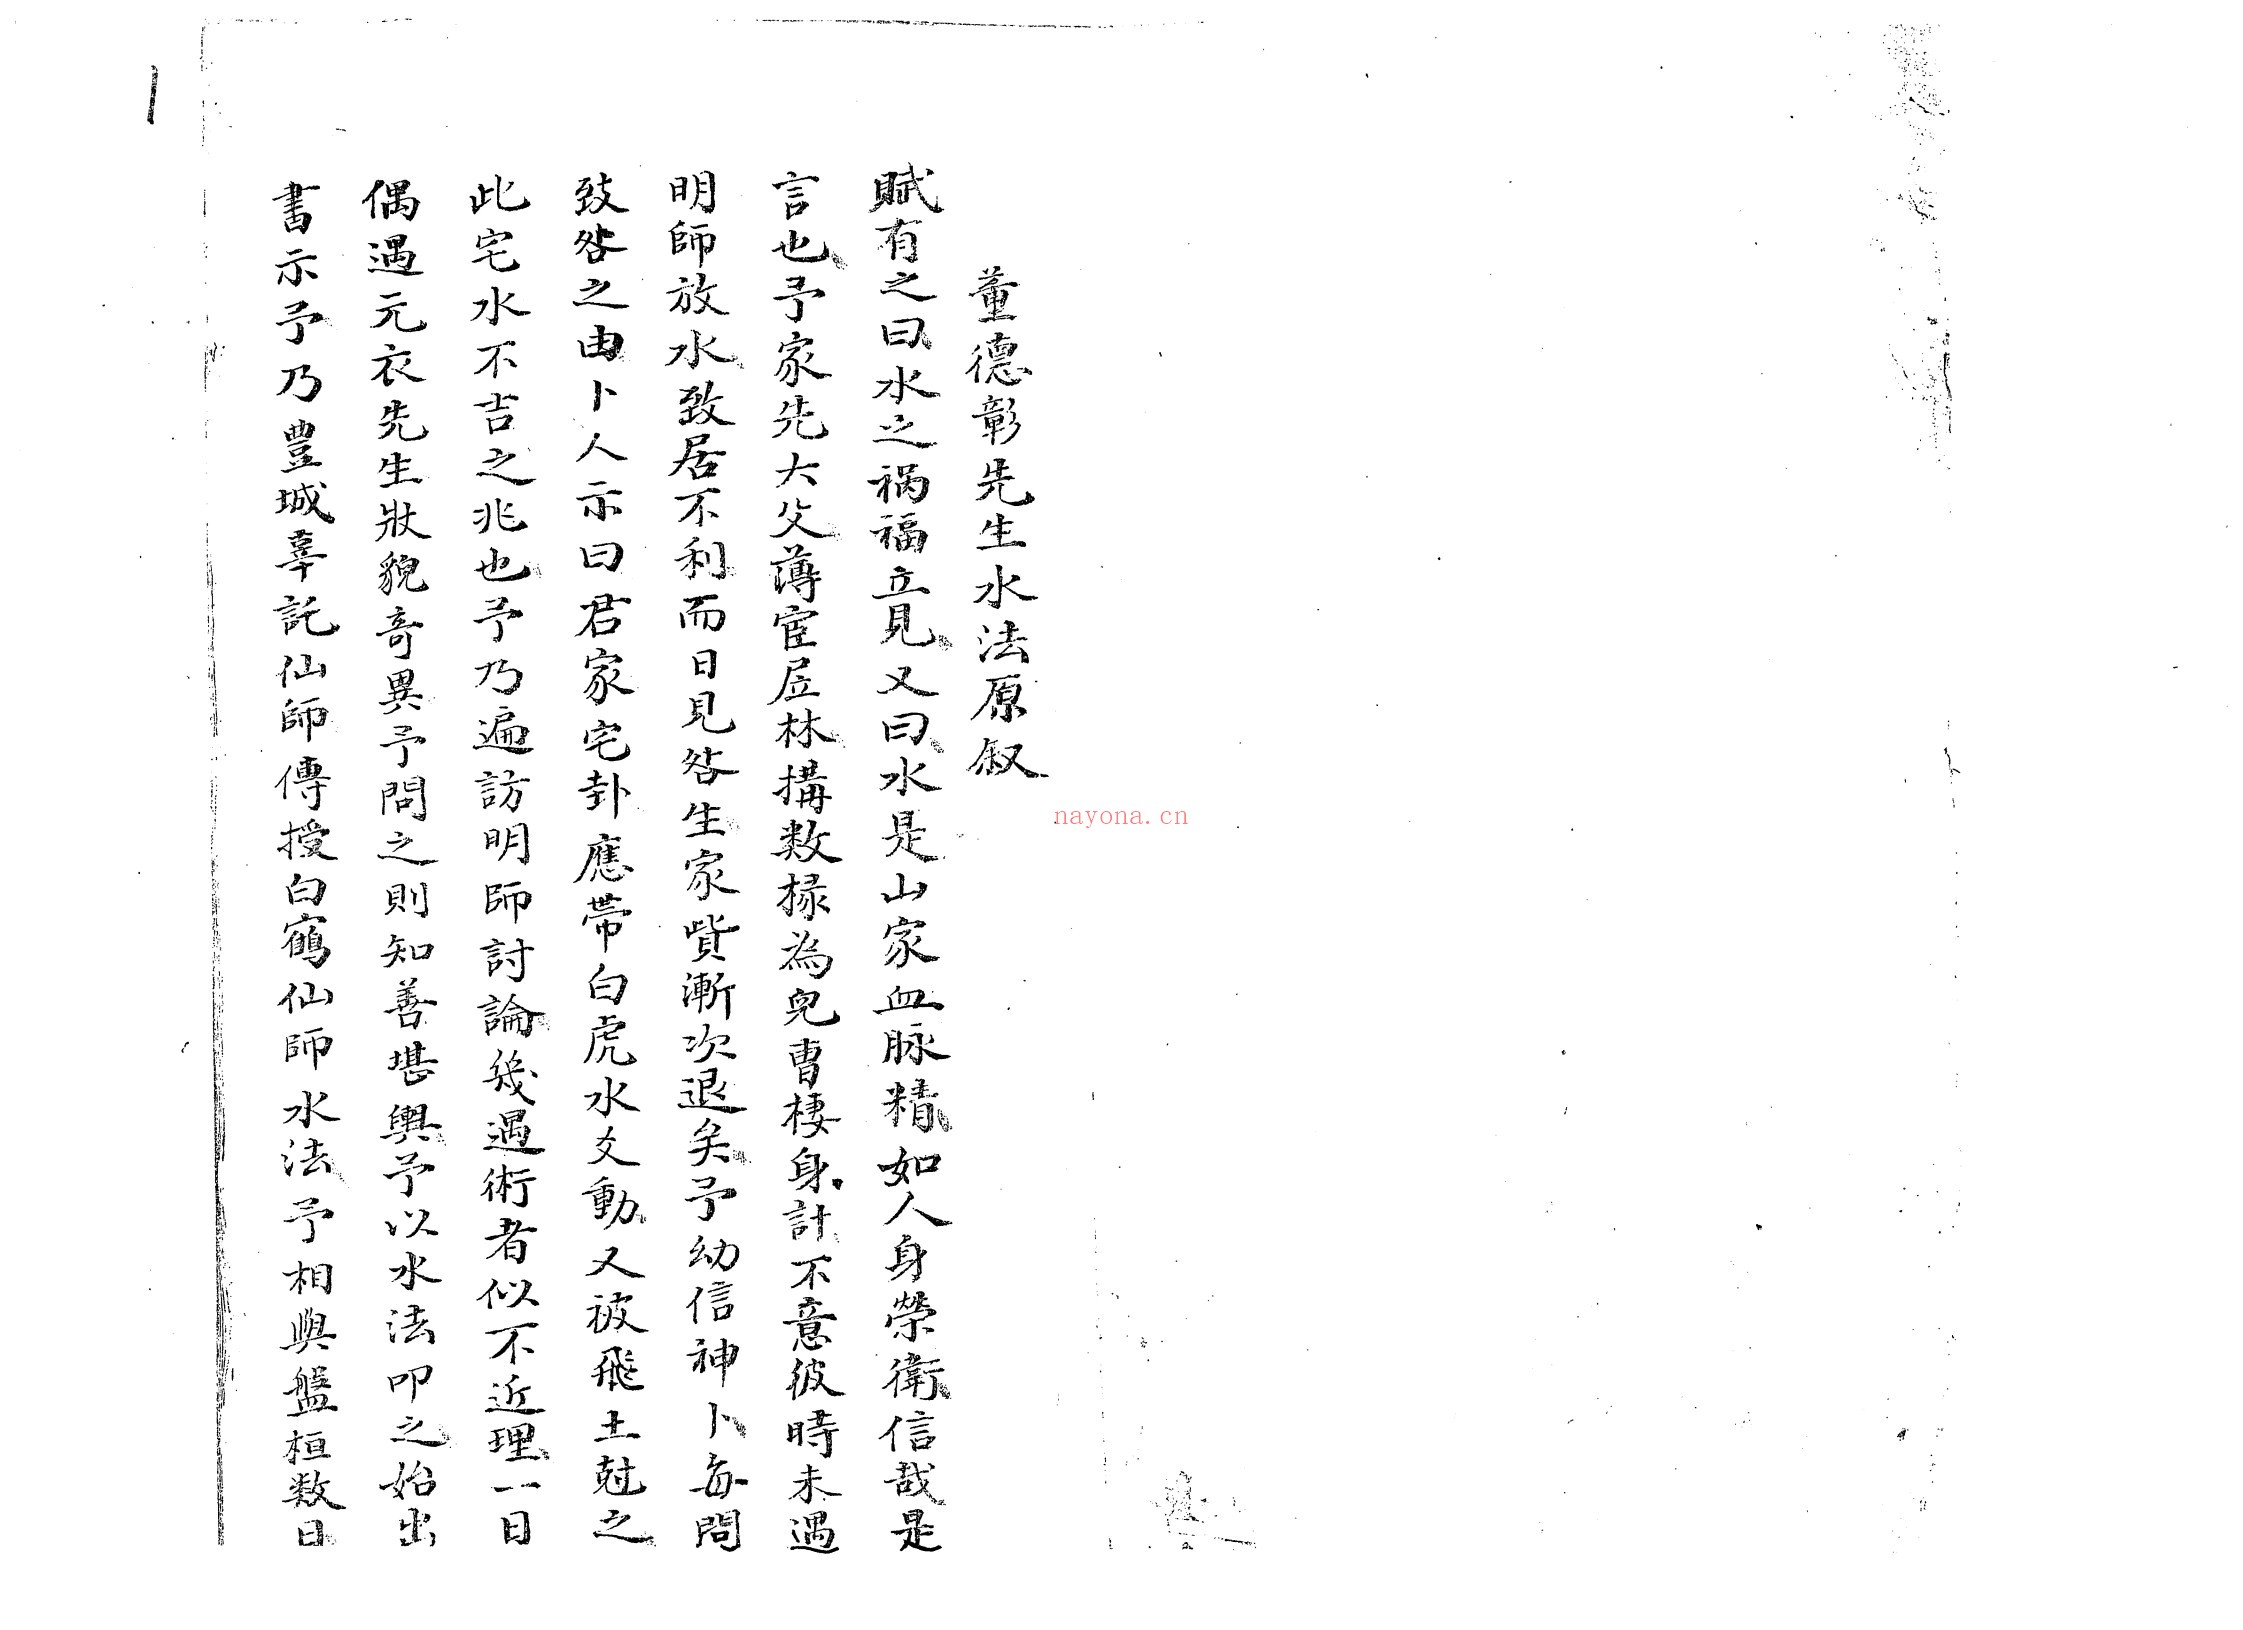 董德彰先生水法原叙
賦有之曰水之祸福立見又曰水是山家血脉精如人身榮衛信哉是
言也予家先大父薄宦居林搆数椽為兒曹棲身計不意彼時未遇
明師放水致居不利而日見咎生家貲漸次退矣予幼信神卜每問
致咎之由卜人示曰君家宅卦應帶白虎水爻動又被飛土尅之
此宅水不吉之兆也予乃遍訪明師討論幾遇術者似不近理一日
偶遇元衣先生狀貌奇異予問之則知善堪輿予以水法叩之始出
書示予乃豊城辜託仙師傳授白鶴仙師水法予相與盤桓数日
nayona.cn